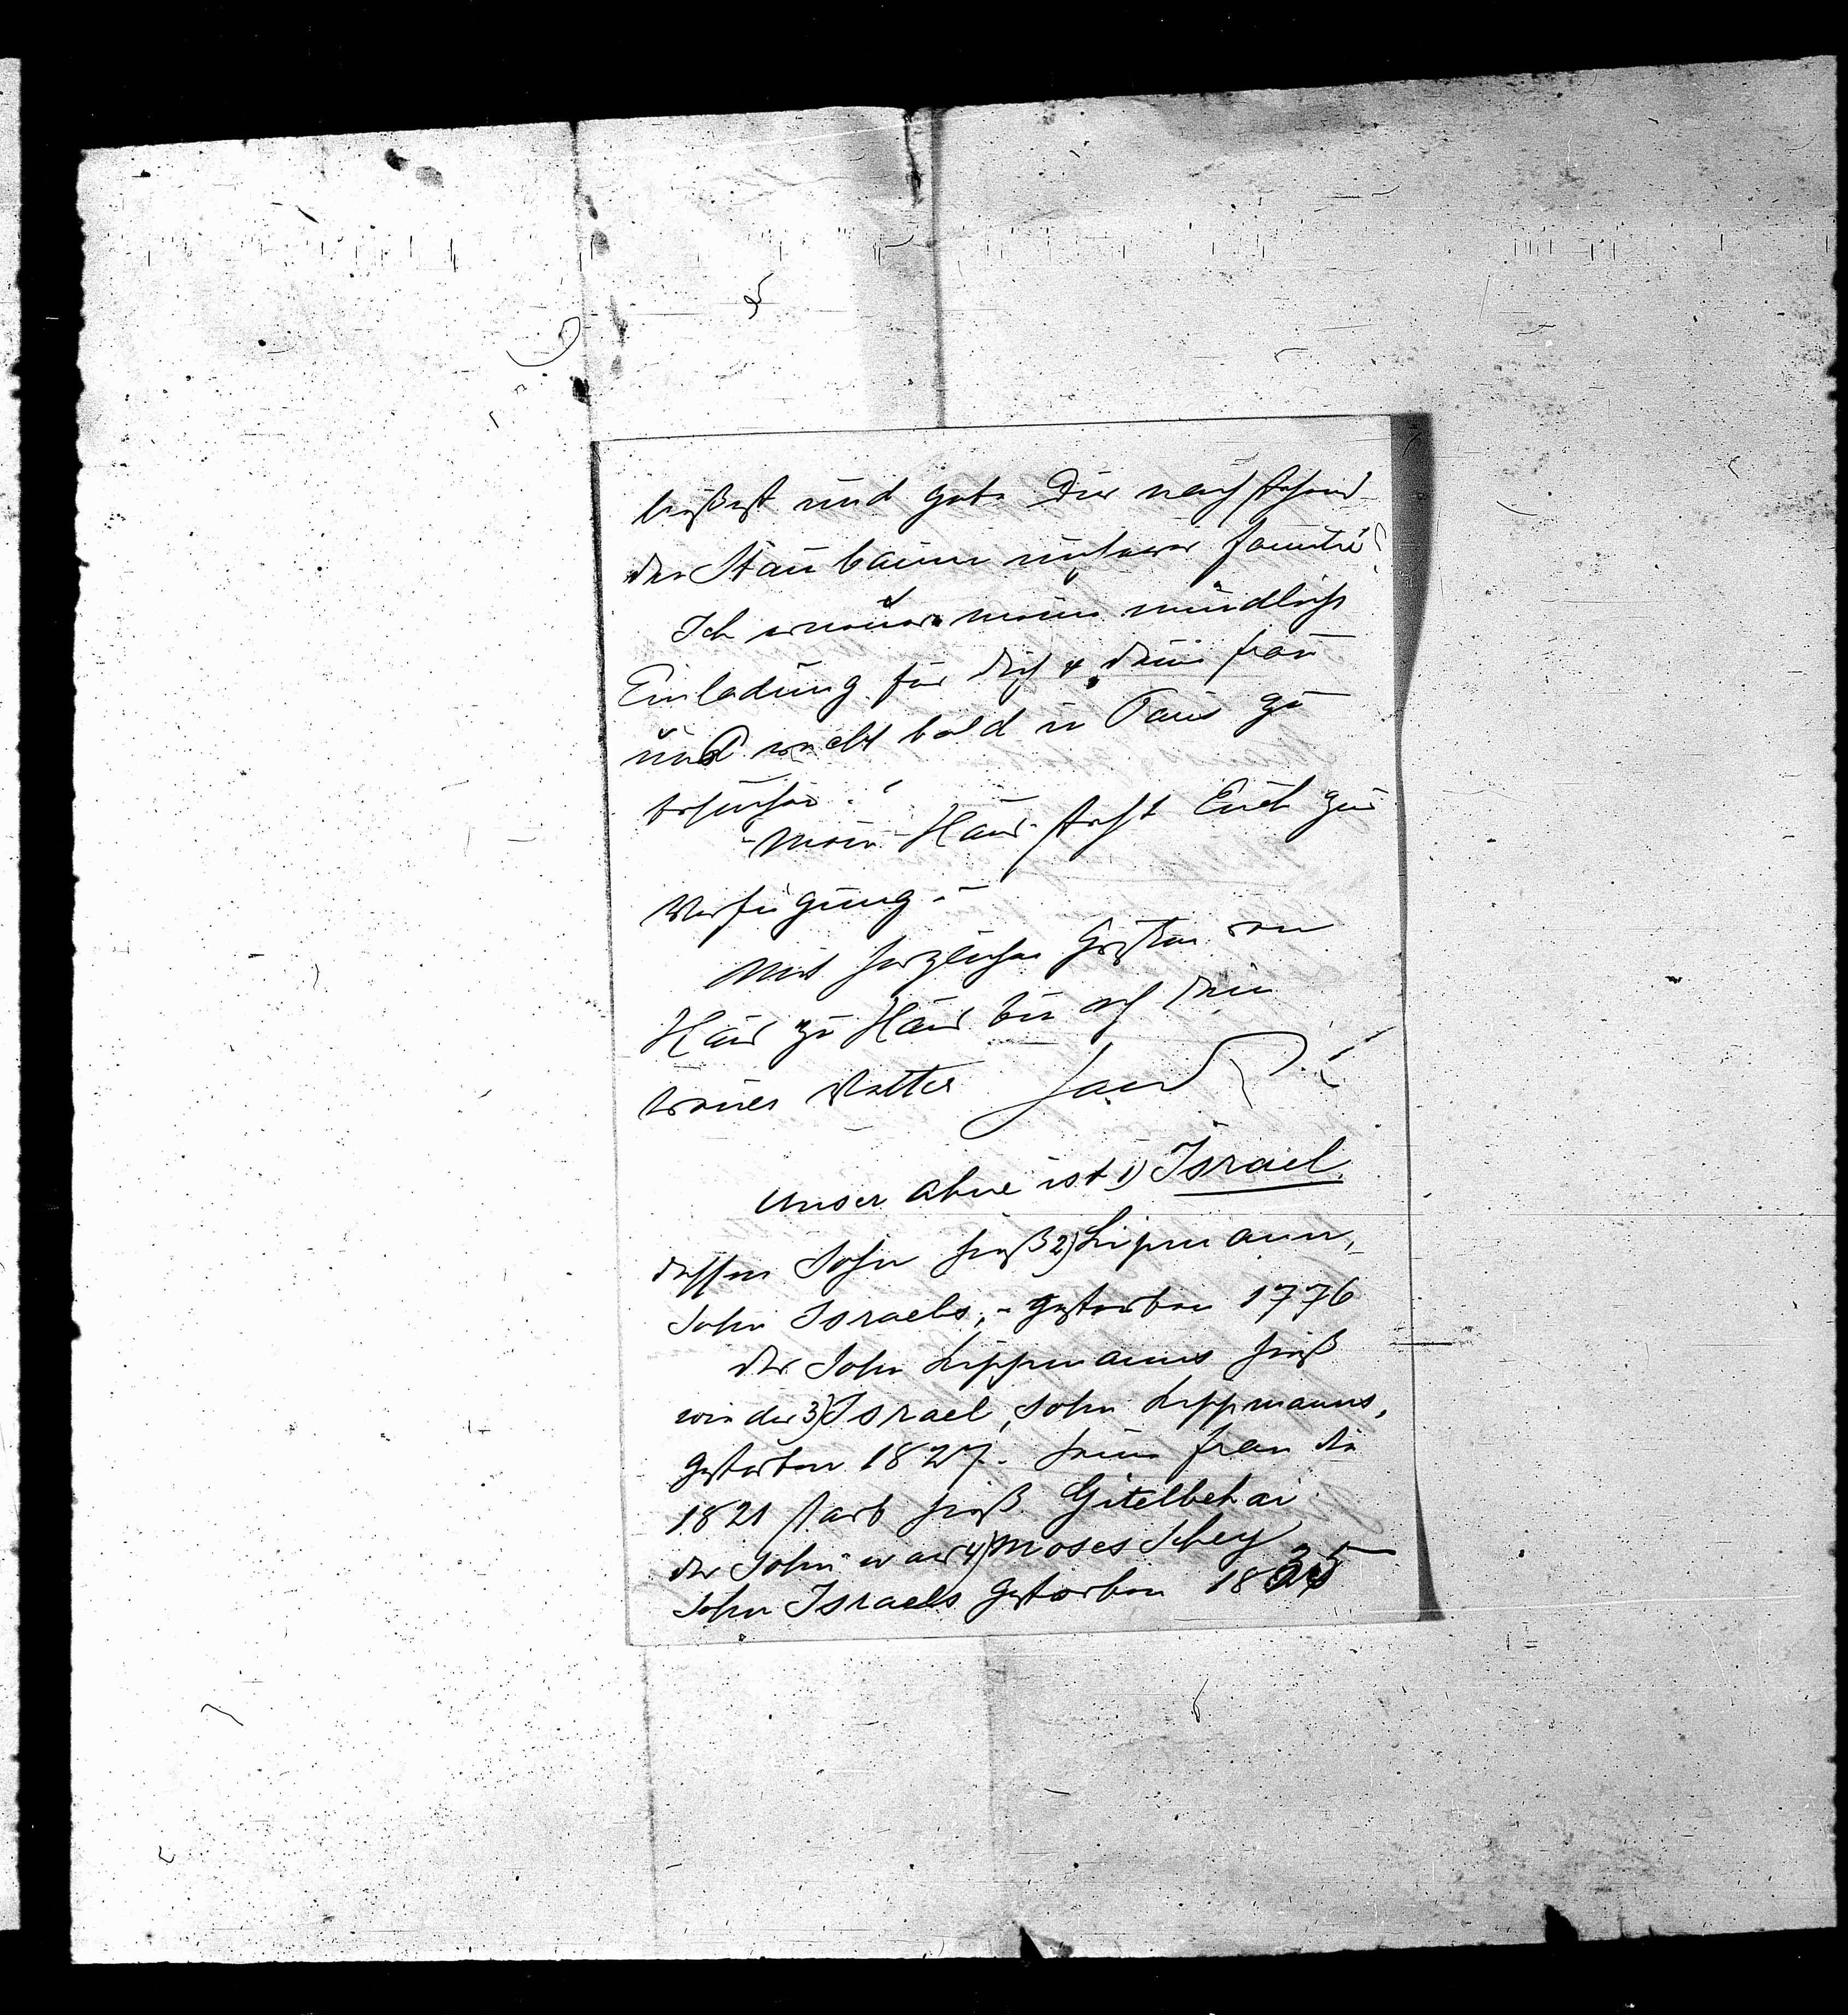 und gebe Dir nachstehend
den Staubaum unserer Familie
Ich erneuere meine mündliche
Einladung für Dich & Deine Frau
uns recht bald in Paris zu
besuchen!
Mein Haus steht Euch zur
Verfügung.
Mit herzlichen Grüßen von
Haus zu Haus bin ich Dein
treuer Vetter
Unser Ahne ist 1) Israel
dessen Sohn hieß 2) Lipmann,
Sohn Israels, - gestorben 1776
der Sohn Lippmanns hieß
wieder 3) Israel, Sohn Lippmanns,
gestorben 1827. Seine Frau die
1821 starb hieß Gitelbehai
der Sohn war 4) Moses Schey
Sohn Israels gestorben 1835